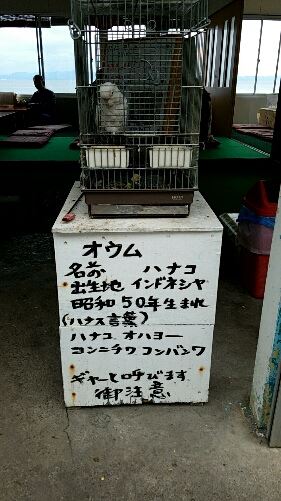 オウム
名前 ハナコ
出生地 インドネシヤ
昭和50年生まれ
(ハナス言葉)
ハナコ オハヨー
コンニチワ コンバンワ
ギャーと呼びます
御注意